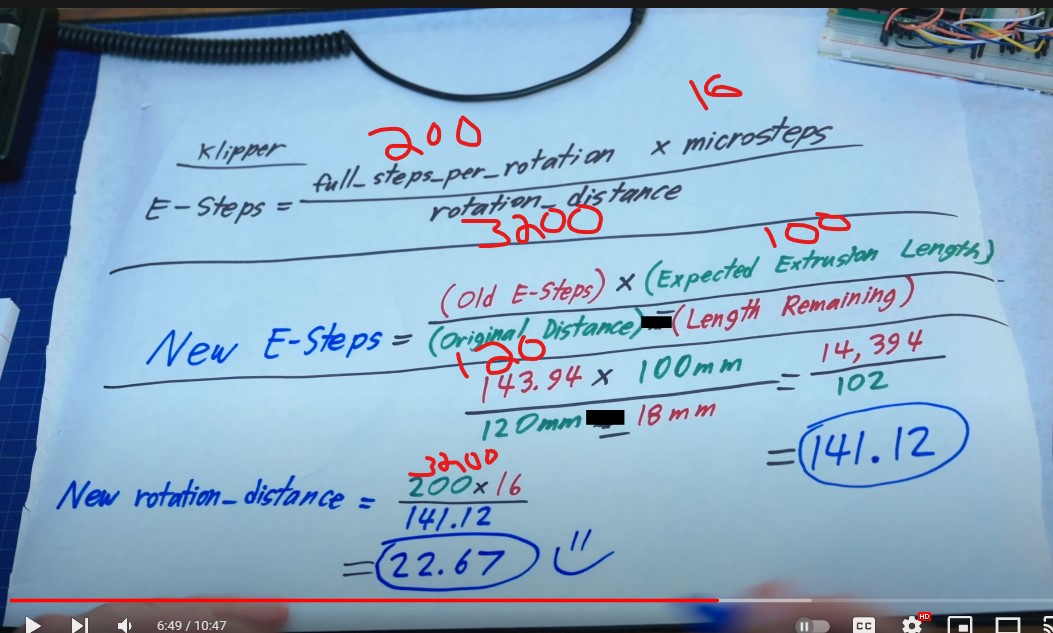 16
200
Klipper
full_steps_per_rotation × microsteps
E-Steps =
rotation_distance
3200
100
(Old E-Steps) × (Expected Extrusion Length)
New E-Steps =
(Original Distance) (Length Remaining)
120
143.94 × 100mm = 14,394
120mm = 18mm 102
= 141.12
3200
New rotation_distance = 200×16
141.12
= 22.67
6:49 / 10:47
CC
HD